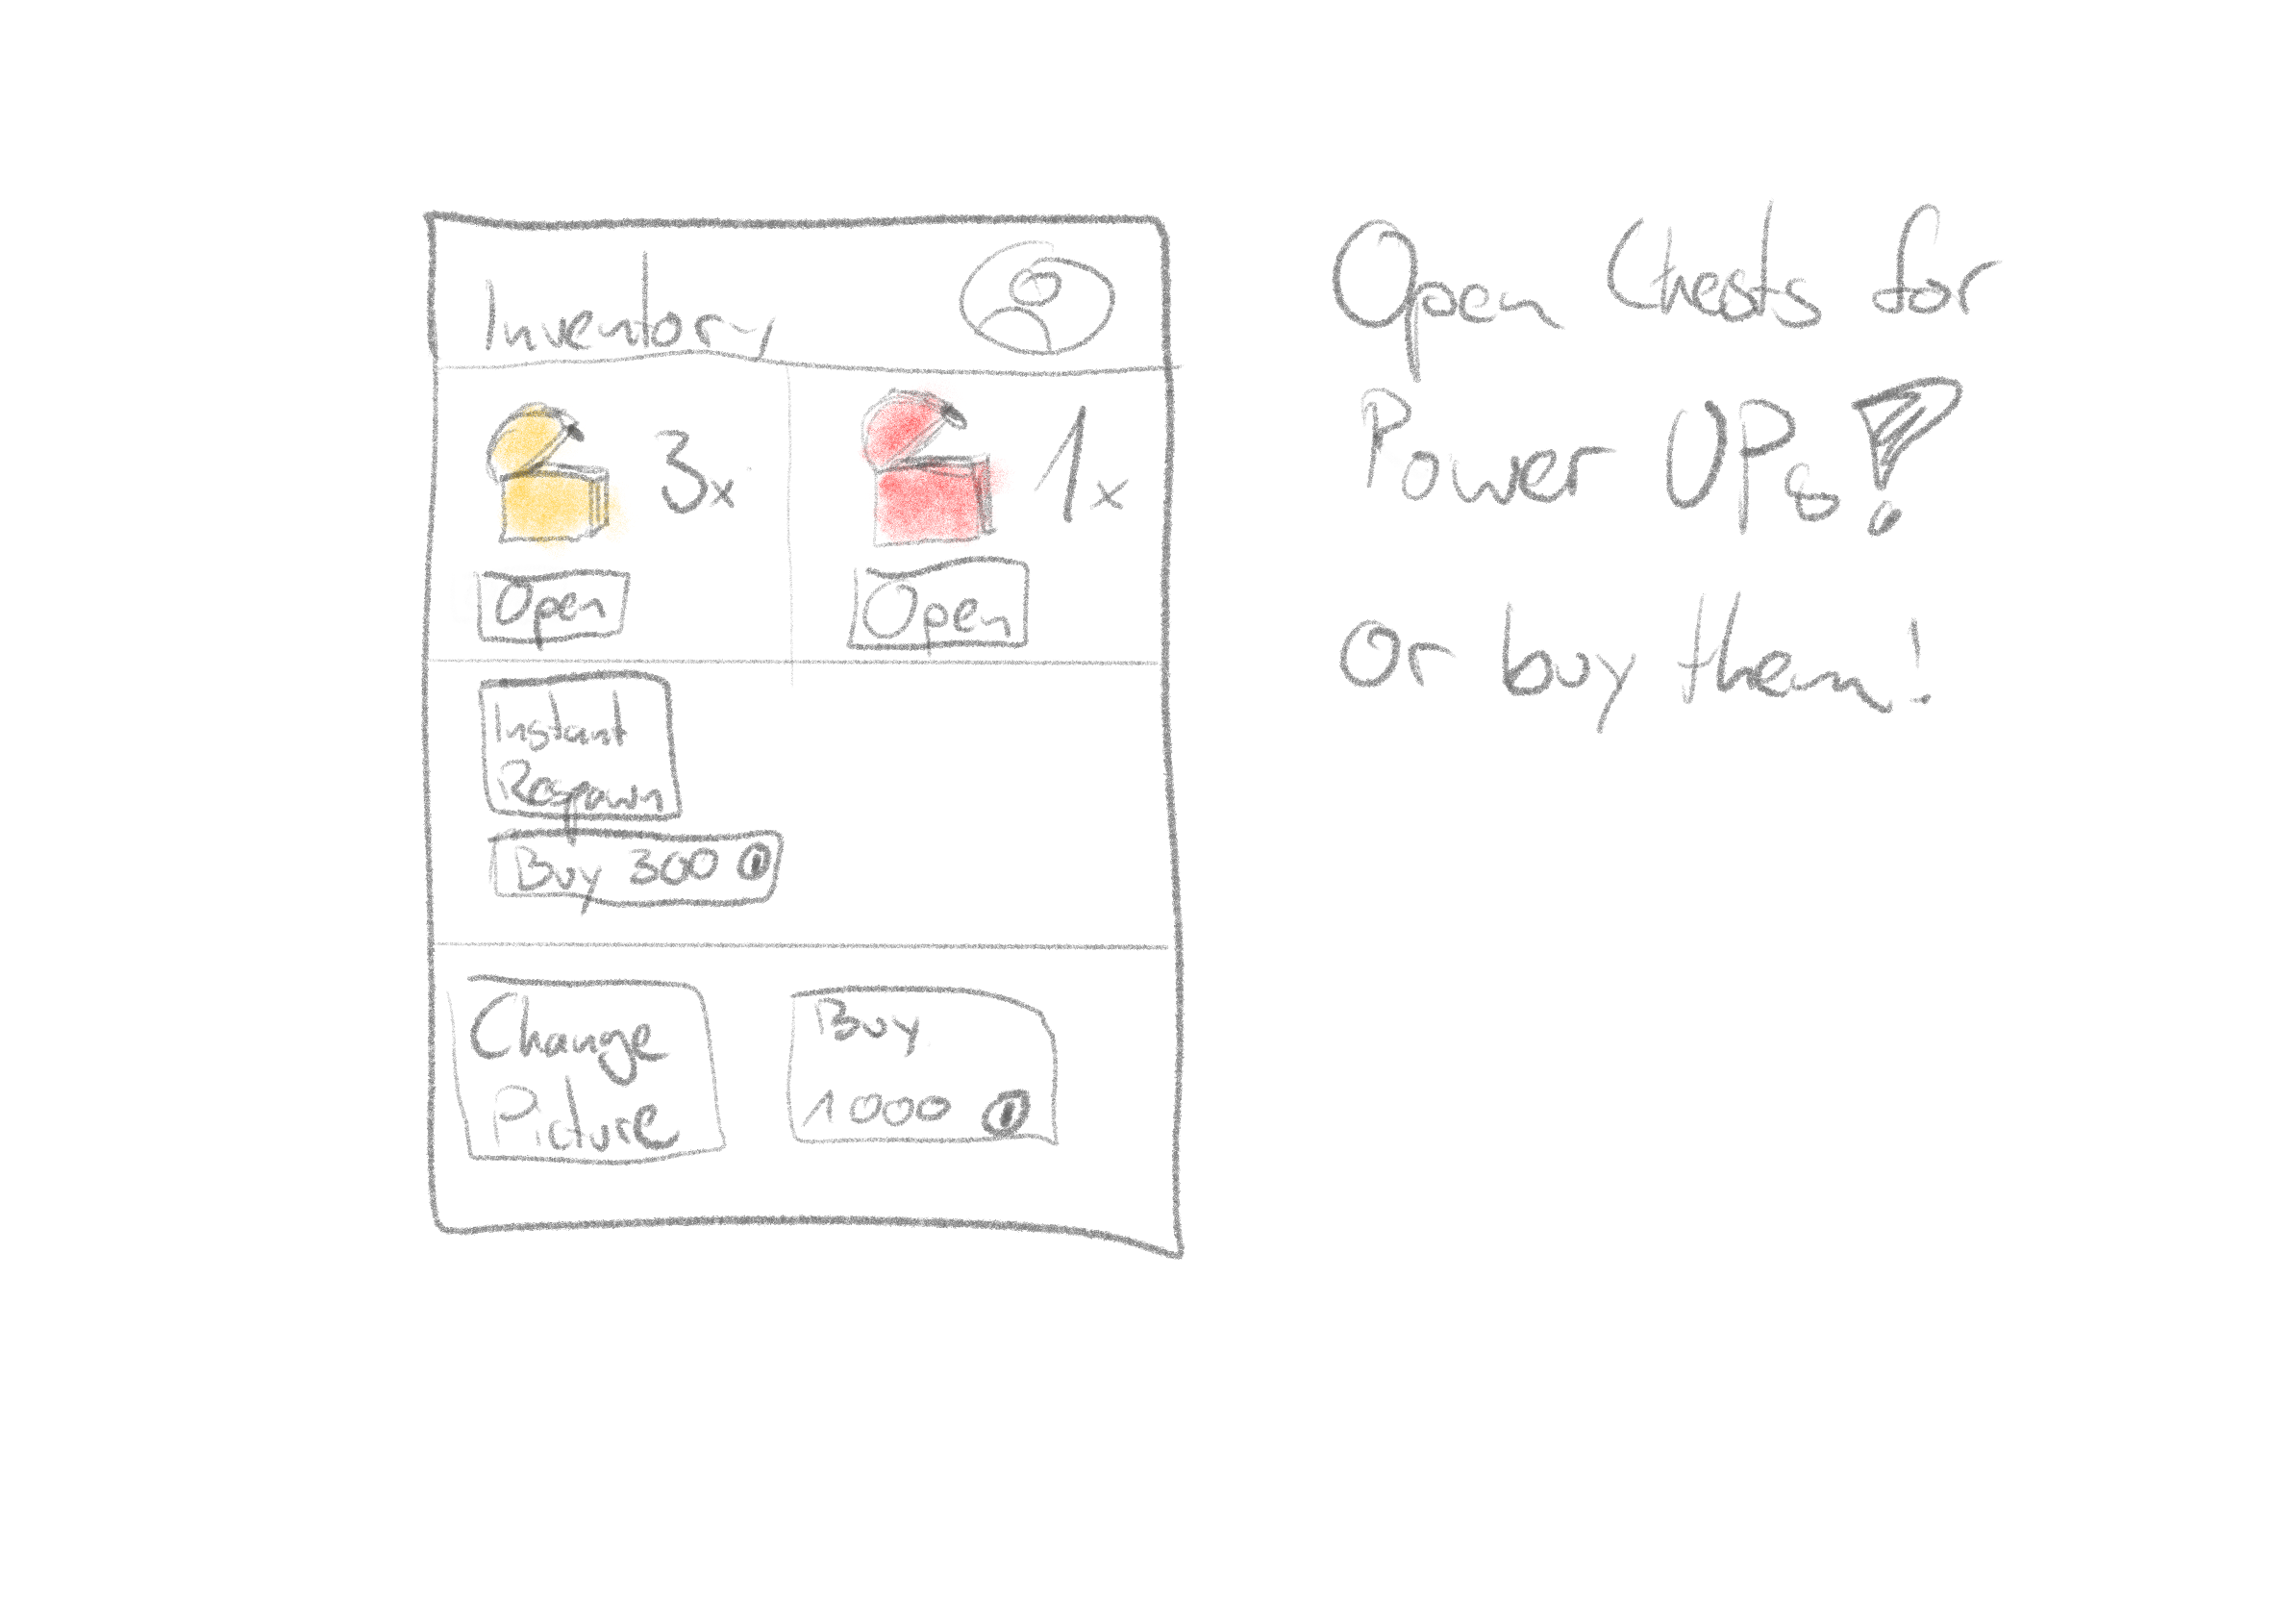 Inventory
3x
1x
Open
Open
Instant
Respawn
Buy 300
Change
Picture
Buy
1000
Open Chests for
Power UPs!
Or buy them!